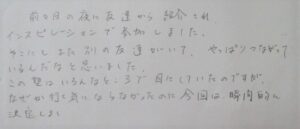 前々日の夜に友達から紹介され
インスピレーションで参加しました。
そこにまた別の友達がいて、やっぱりつながって
いるんだなと思いました。
この塾はいろんなところで目にしていたのですが、
なぜか行く気にならなかったのに今回は瞬間的に
決定しまし